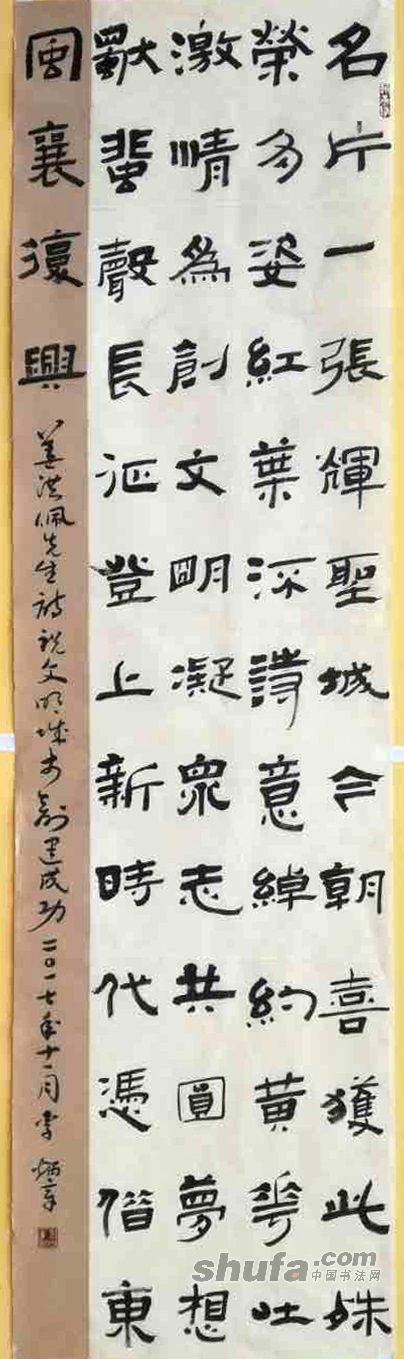 名片一張輝聖城今朝喜獲此殊
榮多姿紅葉深詩意綽約黃花吐
激情為創文明凝眾志共圓夢想
獻蜚聲長征登上新時代憑借東
風襄復興
姜洪佩先生詩祝文明城市創建成功二〇一七年十一月李炳章
shufa.com
中国书法网